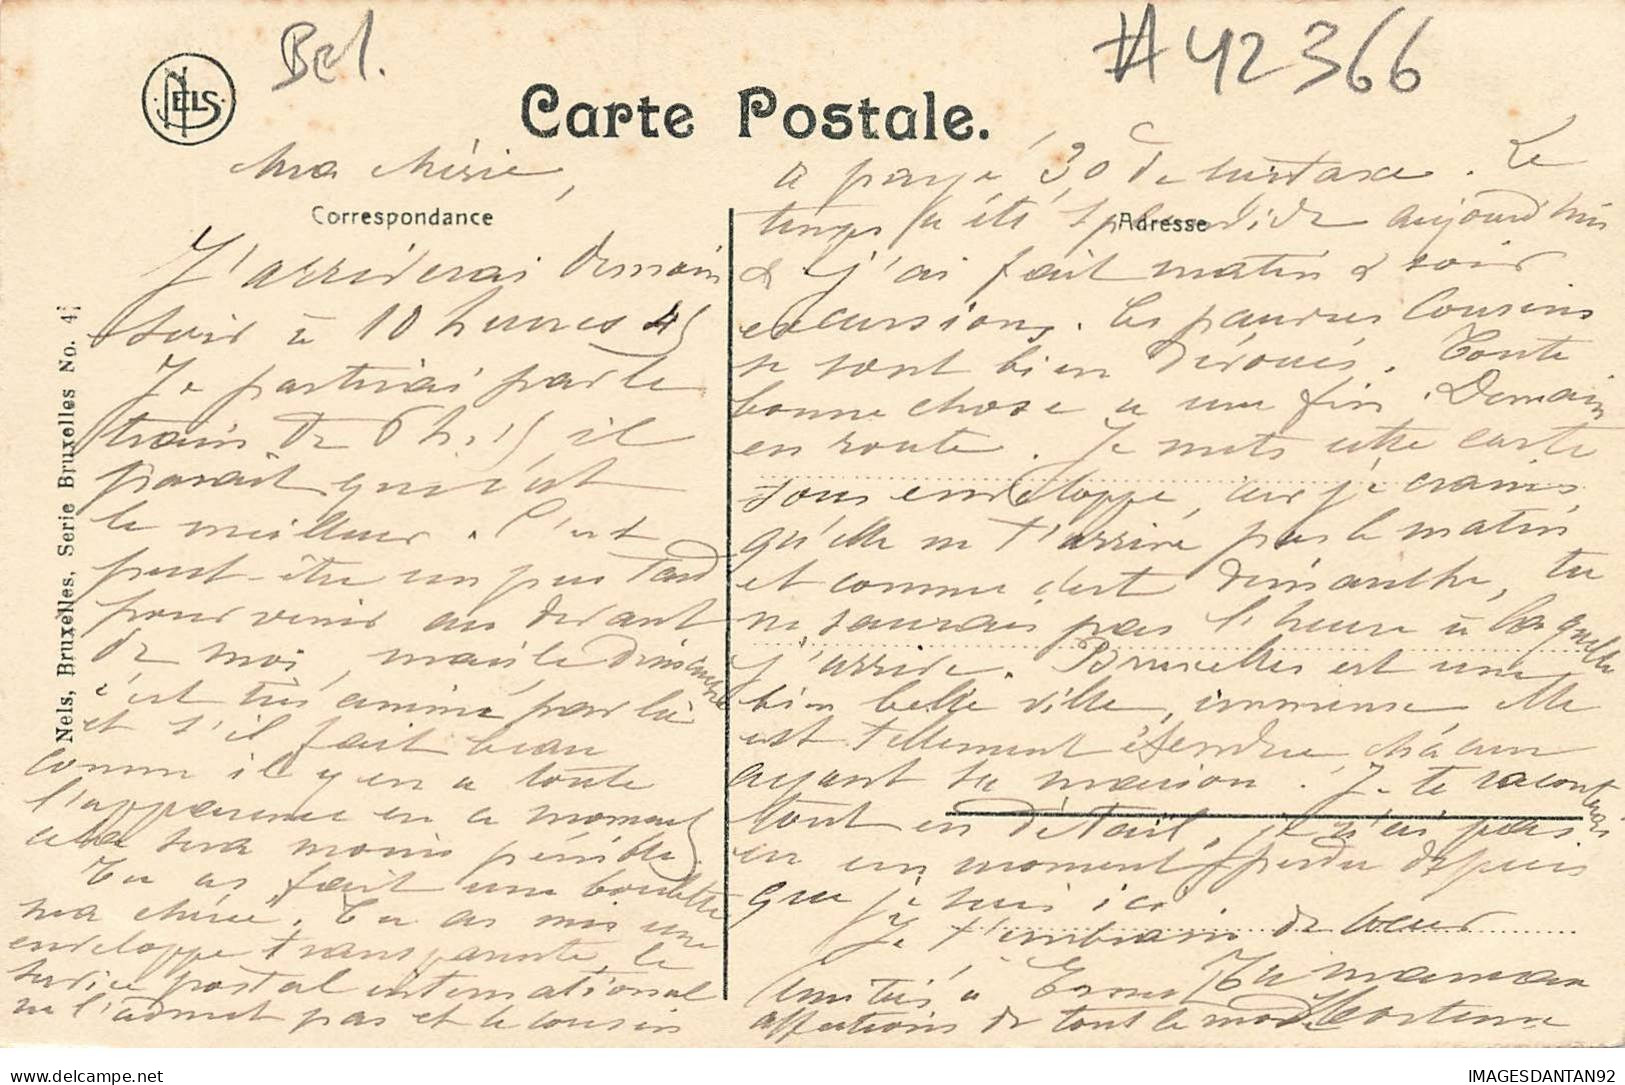 Bel.
#42366
NELS
Carte Postale.
Nels, Bruxelles, Serie Bruxelles No. 4
Ma chérie,
Correspondance
J'arriverai demain
soir à 10 heures 45
Je partirai par le
train de 6 h. 15 il
parait que c'est
le meilleur. C'est
peut-être un peu tard
pour venir au devant
de moi, mais le dimanche
c'est très animé par là
et s'il fait beau
comme il y en a toute
l'apparence en ce moment
cela sera moins pénible.
Tu as fait une boulette
ma chérie. Tu as mis une
enveloppe transparente, le
service postal international
ne l'admet pas et le cousin
a payé 30 c de surtaxe. Le
Adresse
temps a été splendide aujourd'hui
& j'ai fait matin & soir
excursions. Les pauvres Cousins
se sont bien dévoués. Toute
bonne chose a une fin. Demain
en route. Je mets cette carte
sous enveloppe, car je crains
qu'elle ne t'arrive pas le matin
et comme c'est dimanche, tu
ne saurais pas l'heure à laquelle
j'arrive. Bruxelles est une
bien belle ville, immense elle
est tellement étendue, chacun
ayant sa maison. Je te raconterai
tout en détail, je n'ai pas
eu un moment perdu depuis
que je suis ici.
Je t'embrasse de coeur
Ta maman
Amitiés à
affections de tout le monde Hortense
IMAGESDANTAN92